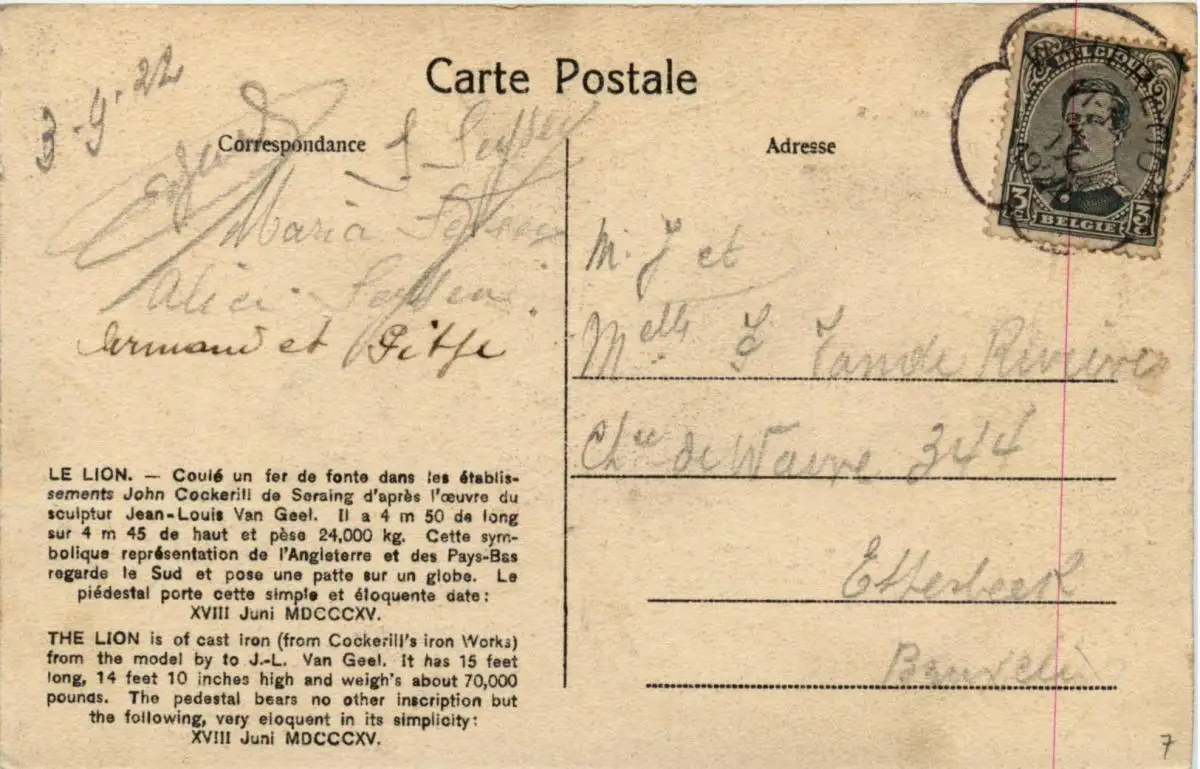 Carte Postale
3-9-22
Correspondance
Maria
Alice
Armand et
LE LION. — Coulé un fer de fonte dans les établis-
sements John Cockerill de Seraing d'après l'œuvre du
sculptur Jean-Louis Van Geel. Il a 4 m 50 de long
sur 4 m 45 de haut et pèse 24,000 kg. Cette sym-
bolique représentation de l'Angleterre et des Pays-Bas
regarde le Sud et pose une patte sur un globe. Le
piédestal porte cette simple et éloquente date:
XVIII Juni MDCCCXV.
THE LION is of cast iron (from Cockerill's iron Works)
from the model by to J.-L. Van Geel. It has 15 feet
long, 14 feet 10 inches high and weigh's about 70,000
pounds. The pedestal bears no other inscription but
the following, very eloquent in its simplicity:
XVIII Juni MDCCCXV.
Adresse
BELGIQUE
3c 3c
BELGIE
M. J et
Melle J Vande Rivière
Chee de Wavre 344
Etterbeek
Bruxelles
7